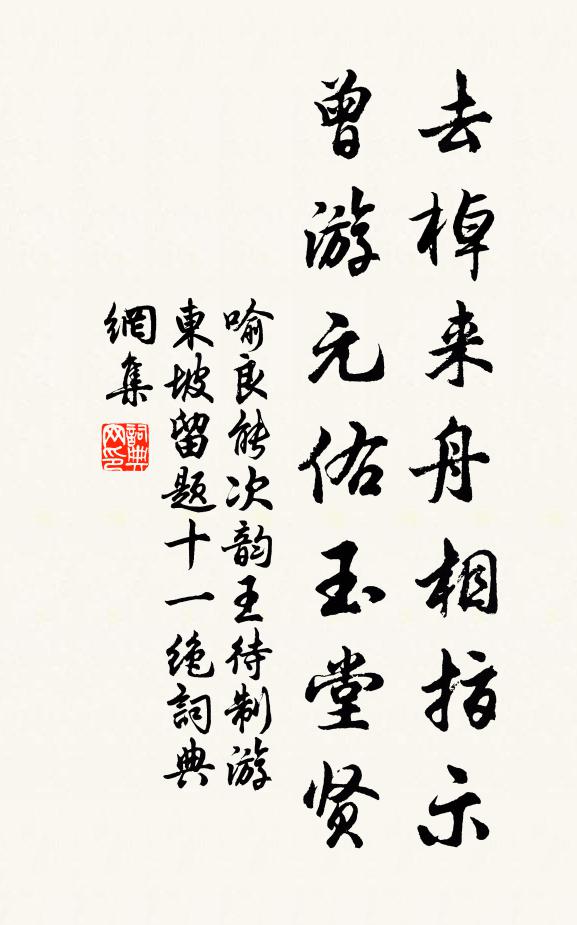 去棹来舟相指示
曾游元佑玉堂贤
喻良能次韵王待制游
東坡留题十一绝詞典
網集
詞典網印